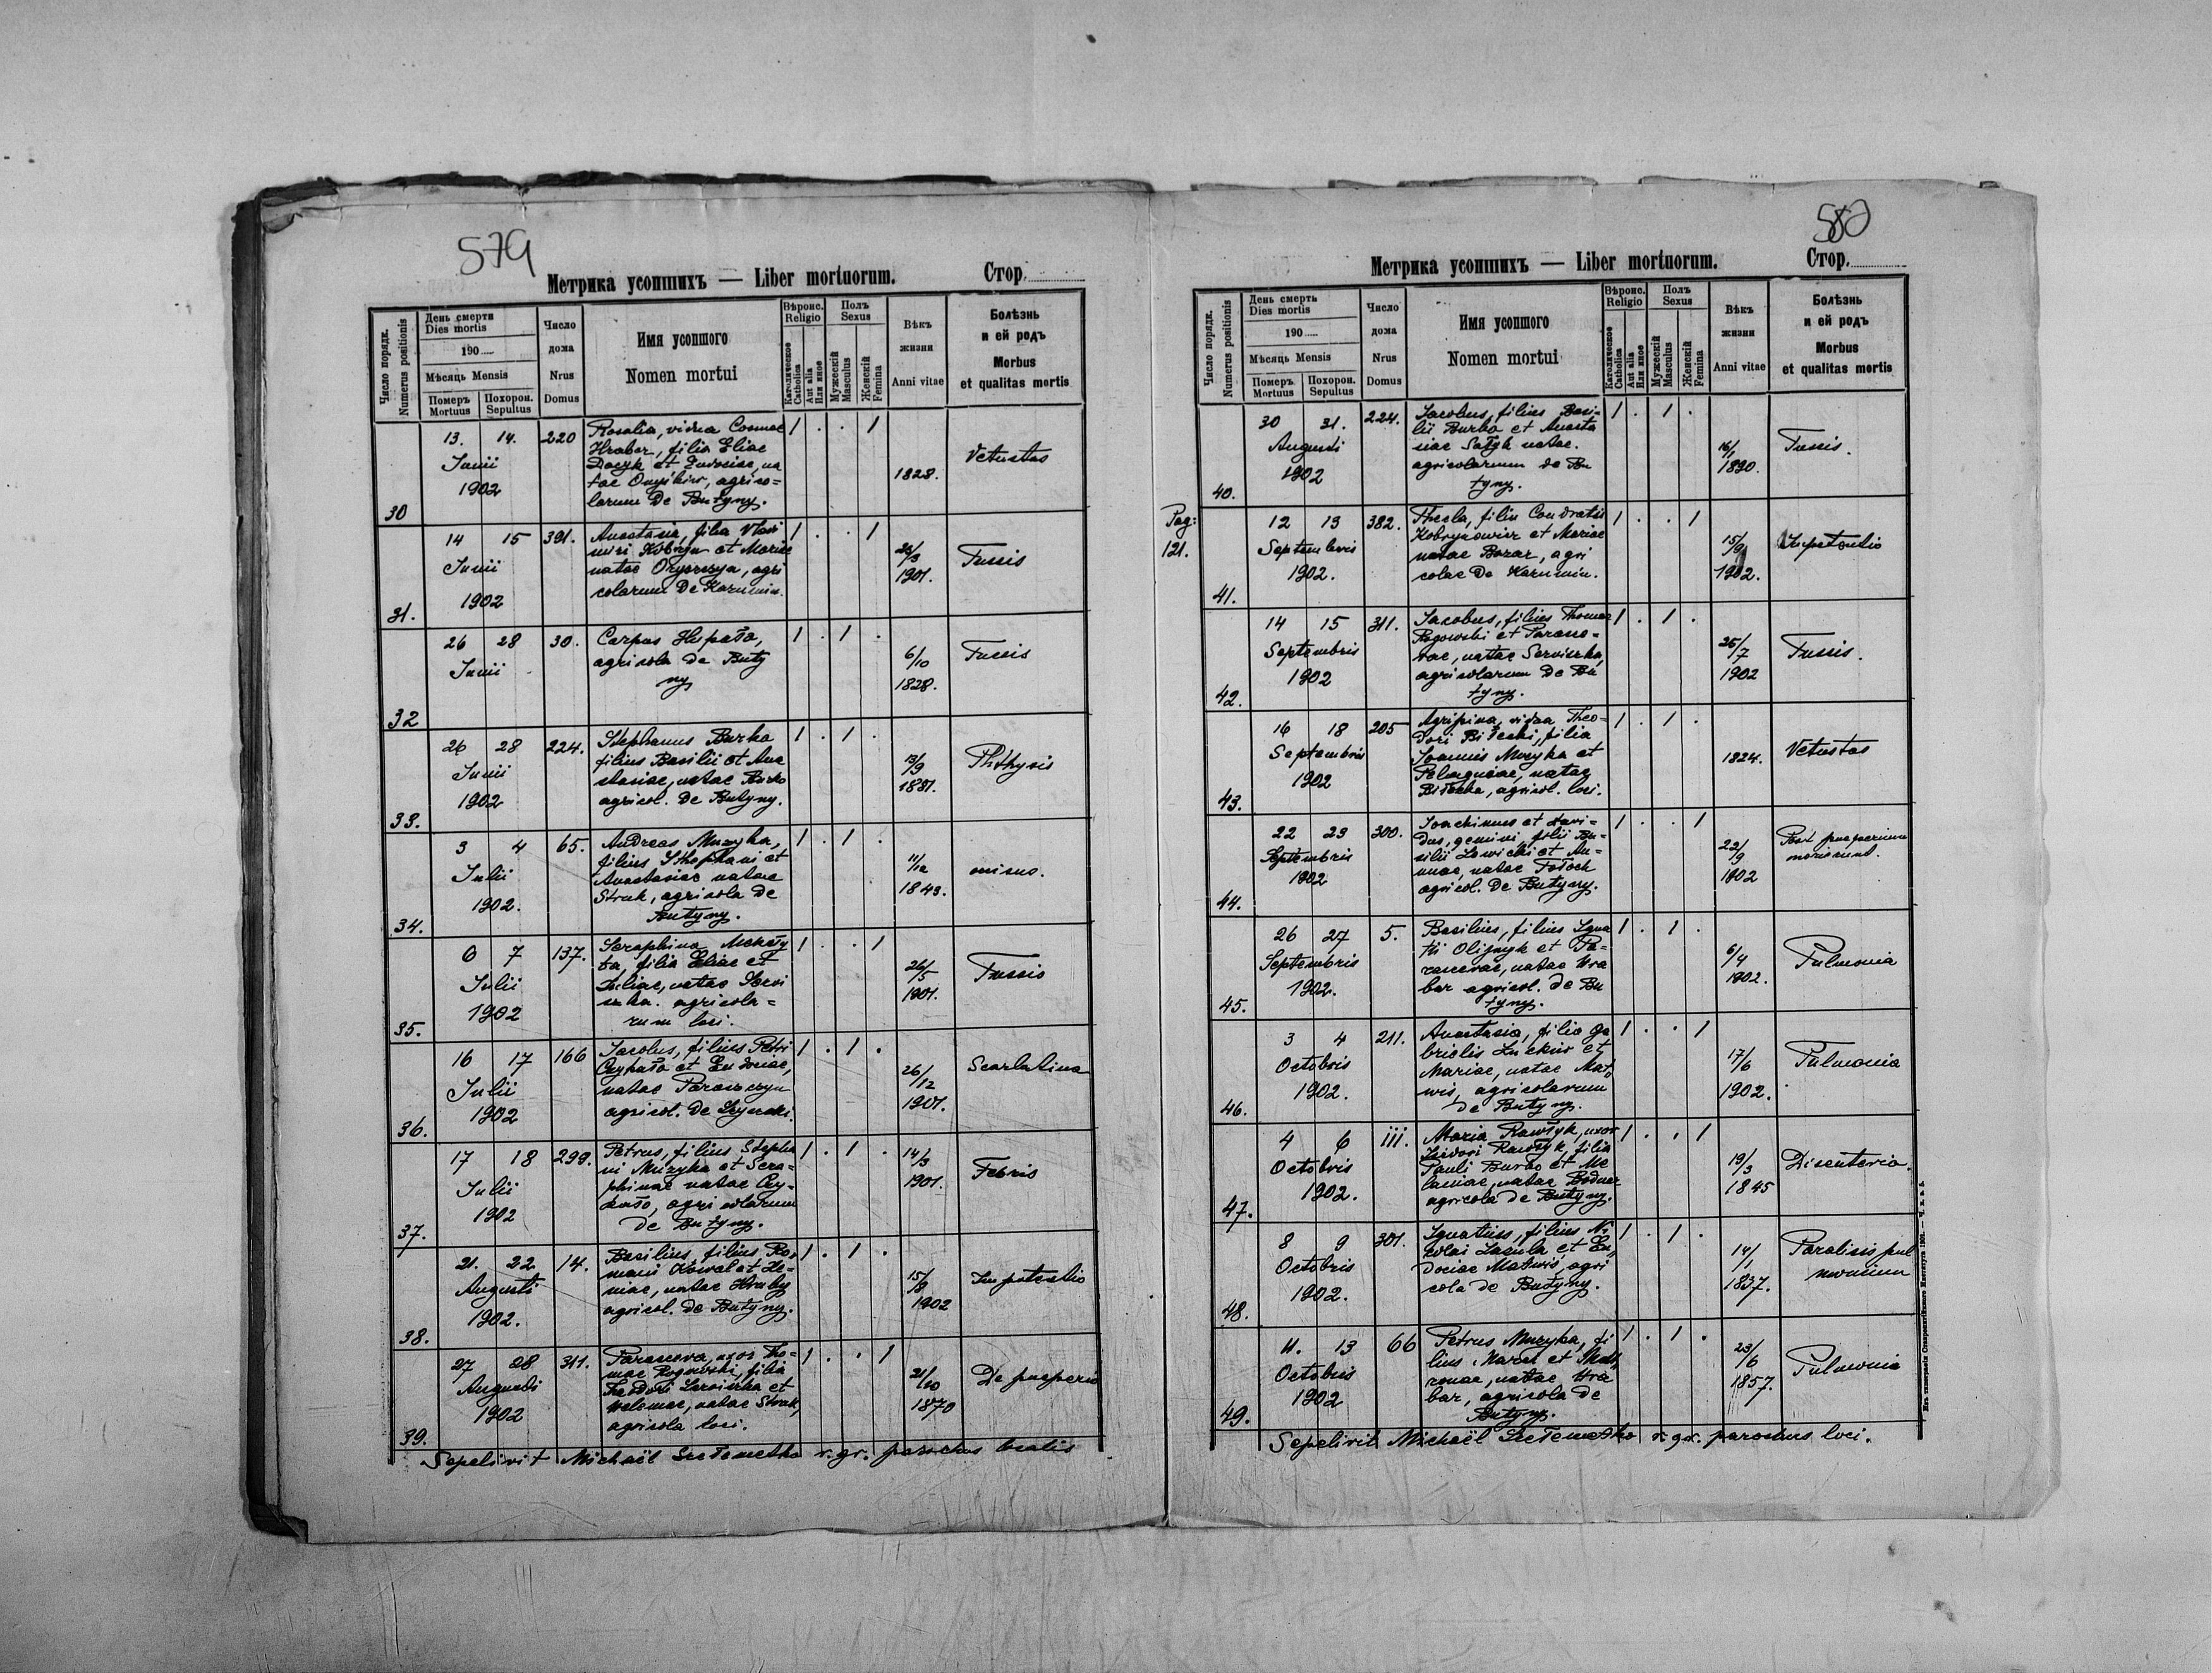 579
Метрика усопшихъ — Liber mortuorum.
Стор.
Число порядк.
Numerus positionis
День смерти
Dies mortis
190
Мѣсяць Mensis
Померъ Mortuus
Похорон. Sepultus
Число дома
Nrus Domus
Имя усопшого
Nomen mortui
Вѣроис. Religio
Католическое Catholica
Aut alia Или иное
Полъ Sexus
Мужескій Masculus
Женскій Femina
Вѣкъ жизни
Anni vitae
Болѣзнь
и ей родъ
Morbus
et qualitas mortis
30
13. 14. 220
Junii
1902
Rosalia, vidua Cosmae
Hrabar, filia Eliae
et Eudociae, na
tae, agrico=
larum de Butyny.
1 . . 1
1828.
Vetustas
31.
14 15 391.
Junii
1902
Anastasia, filia Vlodi
miri Kobryn et Mariae
natae, agri
colarum de Karumin.
1 . . 1
23/3
1901.
Tussis
32
26 28 30.
Junii
Carpus
agricola de Buty
ny
1 . 1 .
6/10
1828.
Tussis
33.
26 28 224.
Junii
1902
Stephanus Burko
filius Basilii et Ana
stasiae, natae Burko
agricol. de Butyny.
1 . 1 .
1881.
Phthysis
34.
3 4 65.
Julii
1902.
Andreas Muzyka,
filius Sthephani et
Anastasiae natae
Struk, agricola de
Butyny.
1 . 1 .
11/12
1843.
35.
6 7 137.
Julii
1902
Seraphina
ta, filia Eliae et
Juliae, natae Servi
agricola=
rum loci.
1 . . 1
26/5
1901.
Tussis
36.
16 17 166
Julii
1902
Jacobus, filius Petri
et Eudociae,
natae
agricol. de
1 . 1 .
26/12
1901.
Scarlatina
37.
17 18 299.
Julii
1902
Petrus, filius Stepha
ni Muzyka et Sera=
phinae natae
agricolarum
de Butyny.
1 . 1 .
14/3
1901.
Febris
38.
21. 22 14.
Augusti
1902.
Basilius, filius Ro=
mani Kowal et He=
natae
agricol. de Butyny.
1 . 1 .
15/8
1902
Impotentio
39.
27 28 311.
Augusti
1902
Parasceva, uxor Tho=
mae Rogowski, filia
Theodori et
natae Struk,
agricola loci.
1 . . 1
21/10
1870
De puerperio
Sepelivit Michaël r. gr. parochus localis
580
Метрика усопшихъ — Liber mortuorum.
Стор.
Число порядк.
Numerus positionis
День смерти
Dies mortis
190
Мѣсяць Mensis
Померъ Mortuus
Похорон. Sepultus
Число дома
Nrus Domus
Имя усопшого
Nomen mortui
Вѣроис. Religio
Католическое Catholica
Aut alia Или иное
Полъ Sexus
Мужескій Masculus
Женскій Femina
Вѣкъ жизни
Anni vitae
Болѣзнь
и ей родъ
Morbus
et qualitas mortis
40.
30 31. 224.
Augusti
1902
Jacobus, filius Basi=
lii Burko et Anasta
siae natae.
agricolarum de Bu
tyny.
1 . 1 .
Tussis.
Pag:
121.
41.
12 13 382.
Septembris
1902.
Thecla, filia Condratii
et Mariae
natae, agri
colae de Karumin.
1 . . 1
15/9
1902.
Impotentio
42.
14 15 311.
Septembris
1902
Jacobus, filius Thomae
Rogowski et Parasce=
vae, natae
agricolarum de Bu
tyny.
1 . 1 .
25/7
1902
Tussis.
43.
16 18 205
Septembris
1902
Agripina, vidua Theo=
dori, filia
Joannis Muzyka et
Pelagiae, natae
agricol. loci.
1 . 1 .
1824.
Vetustas
44.
22 23 300.
Septembris
1902
Joachimus et Davi=
dus, gemini, filii Ba=
silii et An=
nae, natae
agricol. de Butyny.
1 . . 1
22/9
1902
Post puerperium
45.
26 27 5.
Septembris
1902.
Basilius, filius Igna
tii Olijnyk et Pa=
rascevae, natae Hra
bar agricol. de Bu
tyny.
1 . 1 .
6/4
1902.
Pulmonia
46.
3 4 211.
Octobris
1902.
Anastasia, filia Ga
brielis et
Mariae, natae Mat
wis, agricolarum
de Butyny.
1 . . 1
17/6
1902.
Pulmonia
47.
4 6 111.
Octobris
1902.
Maria, uxor
Isidori, filia
Pauli Burko et Me
laniae, natae Bodnar
agricola de Butyny.
1 . . 1
19/3
1845
Disenteria.
48.
8 9 301.
Octobris
1902.
Ignatius, filius Ni
colai et Eu
dociae Matwis, agri
cola de Butyny.
1 . 1 .
14/1
1837.
Paralisis pul
monium
49.
11. 13 66
Octobris
1902
Petrus Muzyka, fi
lius et
natae Hra
bar, agricola de
Butyny.
1 . 1 .
23/6
1857.
Pulmonia
Sepelivit Michaël r. gr. parochus loci.